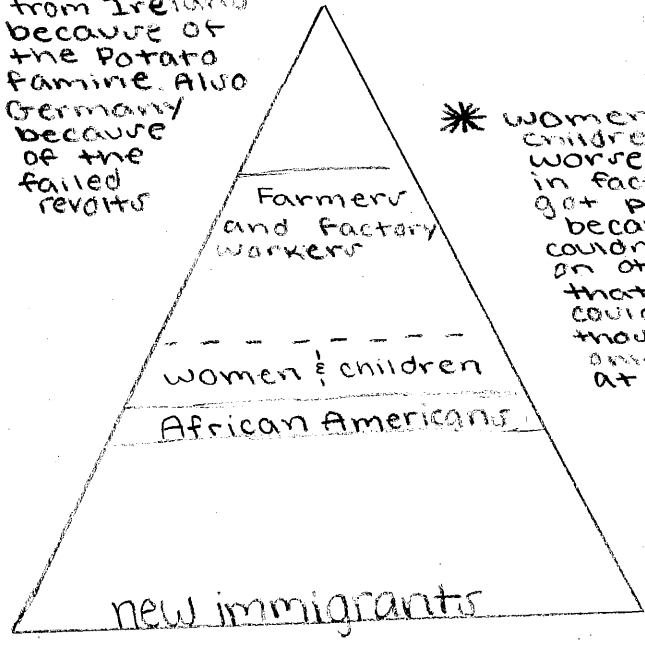 from Ireland
because of
the Potato
famine. Also
Germany
because
of the
failed
revolts
Farmers
and factory
workers
women & children
African Americans
new immigrants
* women
worse
in
got
on
that
at